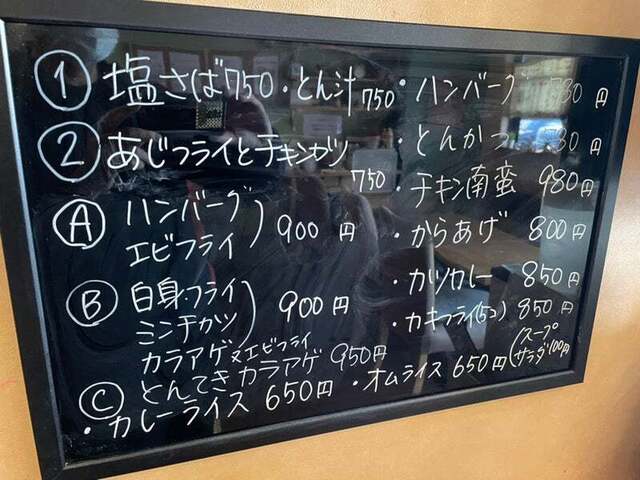 ① 塩さば750・とん汁750
② あじフライとチキンカツ
750
Ⓐ ハンバーグ
エビフライ
900円
Ⓑ 白身・フライ
ミンチカツ
900円
カラアゲ又エビフライ
Ⓒ とんてきカラアゲ 950円
・カレーライス 650円
・オムライス 650円(スープ
サラダ100円
・ハンバーグ 円
・とんかつ 円
・チキン南蛮 980円
・からあげ 800円
・カツカレー 850円
・カキフライ(5コ) 850円